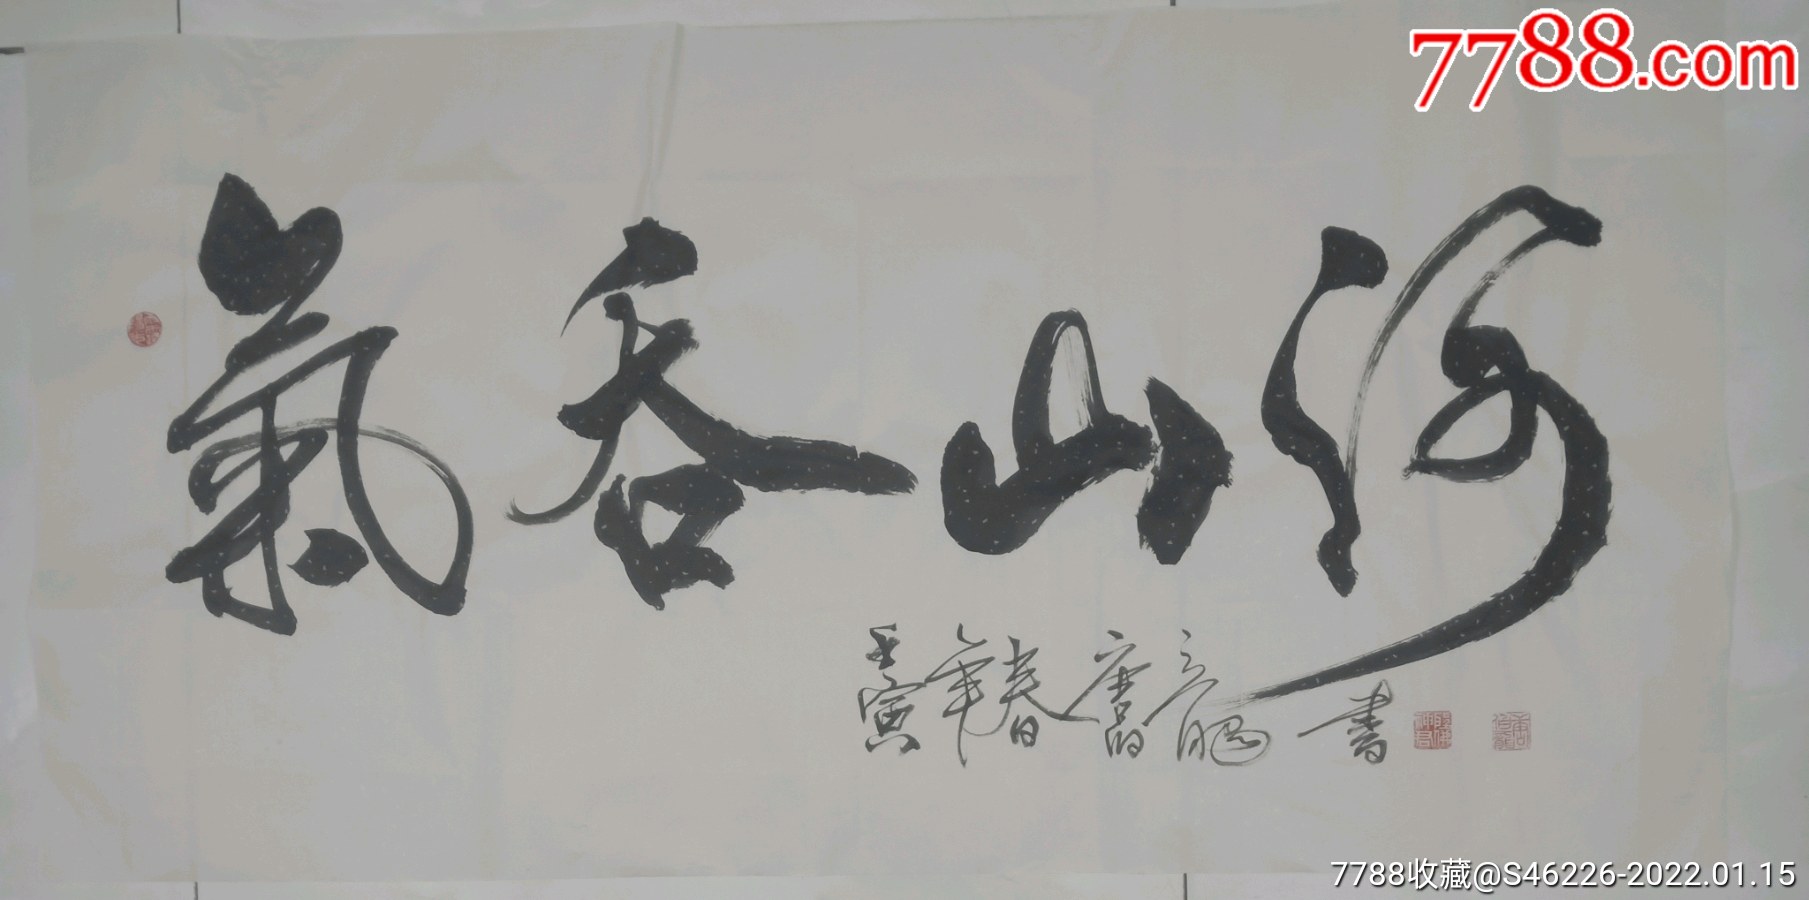 7788.com
氣吞山河
壬寅年春唐
書
7788收藏@S46226-2022.01.15